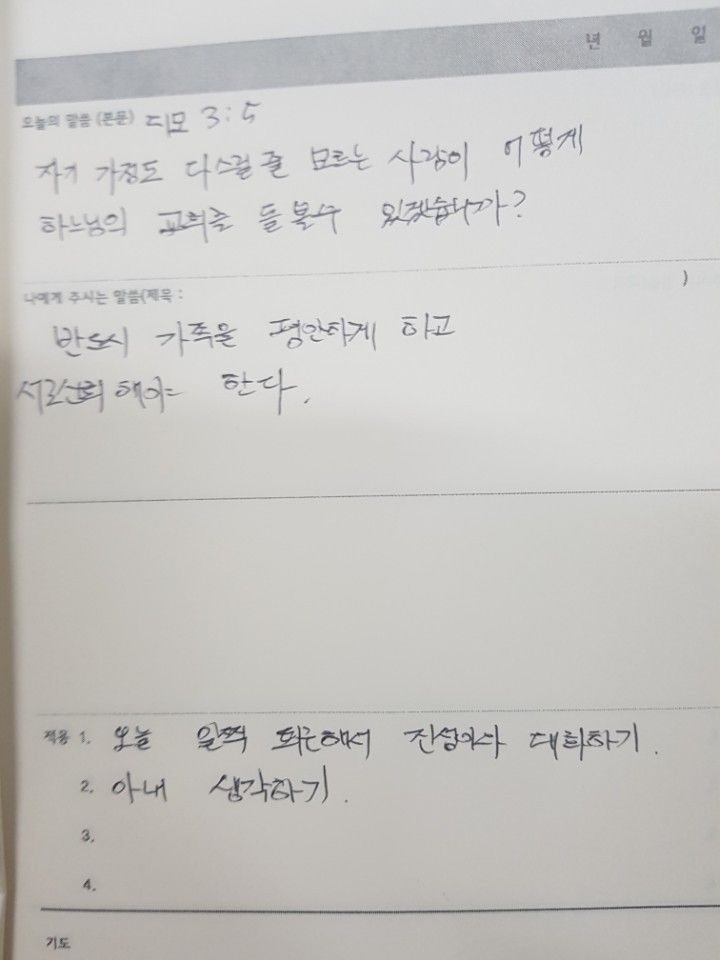 년 월 일
오늘의 말씀 (본문) 디모 3:5
자기 가정도 다스릴 줄 모르는 사람이 어떻게
하느님의 교회를 돌볼수 있겠습니까?
나에게 주시는 말씀(제목 : )
반드시 가족을 평안하게 하고
서로신뢰해야 한다.
적용 1. 오늘 일찍 퇴근해서 대화하기.
2. 아내 생각하기.
3.
4.
기도